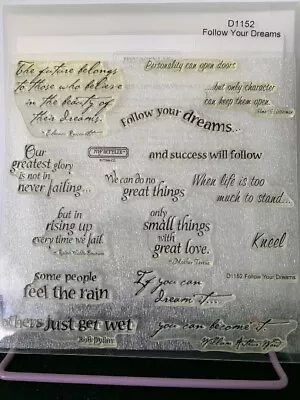 D1152
Follow Your Dreams
The future belongs
to those who believe
in the beauty of
their dreams.
~ Eleanor Roosevelt ~
Personality can open doors
...but only character
can keep them open.
Follow your dreams...
and success will follow
Our
greatest glory
is not in
never failing...
but in
rising up
every time we fail.
~ Ralph Waldo Emerson
We can do no
great things
only
small things
with
great love.
~ Mother Teresa
When life is too
much to stand...
Kneel
D1152 Follow Your Dreams
some people
feel the rain
others just get wet
~Bob Dylan~
If you can
dream it...
you can become it.
William Arthur Ward